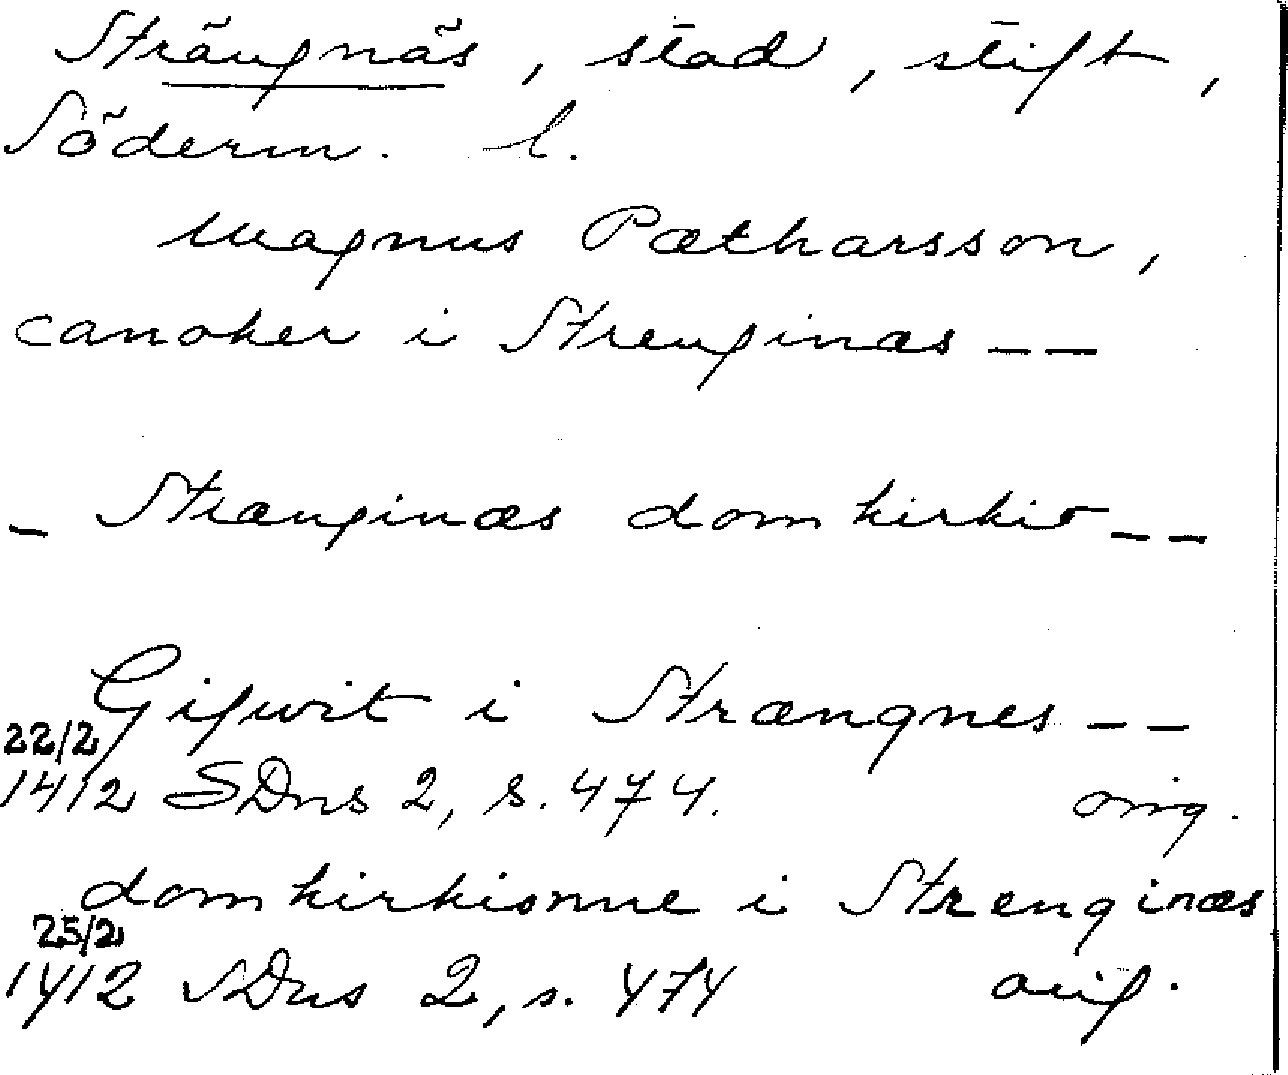 Strängnäs, stad, stift,
Söderm. l.
Magnus Pætharsson,
canoker i Strenginæs --
- Strænginæs domkirkio --
Gifwit i Strængnes --
22/2
1412 SDns 2, s. 474. orig.
domkirkionne i Strenginæs
25/2
1412 SDns 2, s. 474 orig.